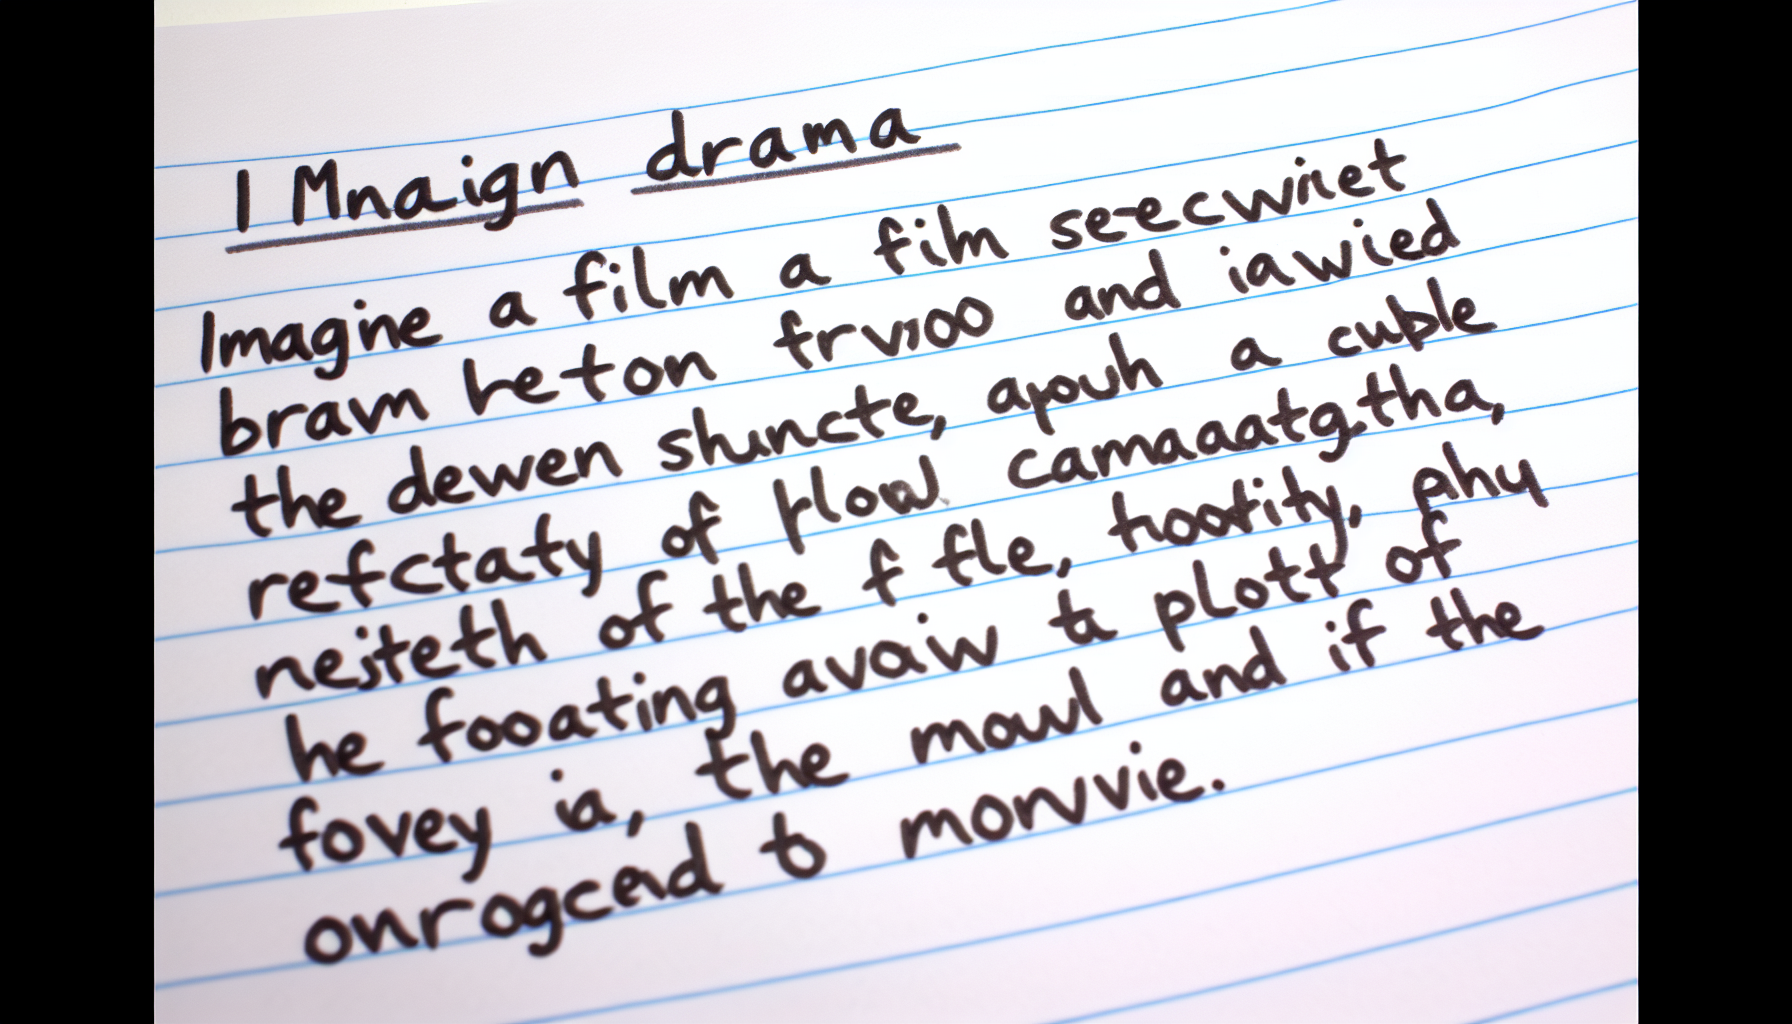 I Mnaign drama
Imagine a film a film se-ecwriet
bravm heton frvioo and iawied
the dewen shuncte, apouh a cuble
refctaty of flow camaaatgtha,
nejteth of the f fle, hoofity, phy
he fooating avaiw ta plott of
fovey ia, the mowl and if the
onrogcend to monvvie.